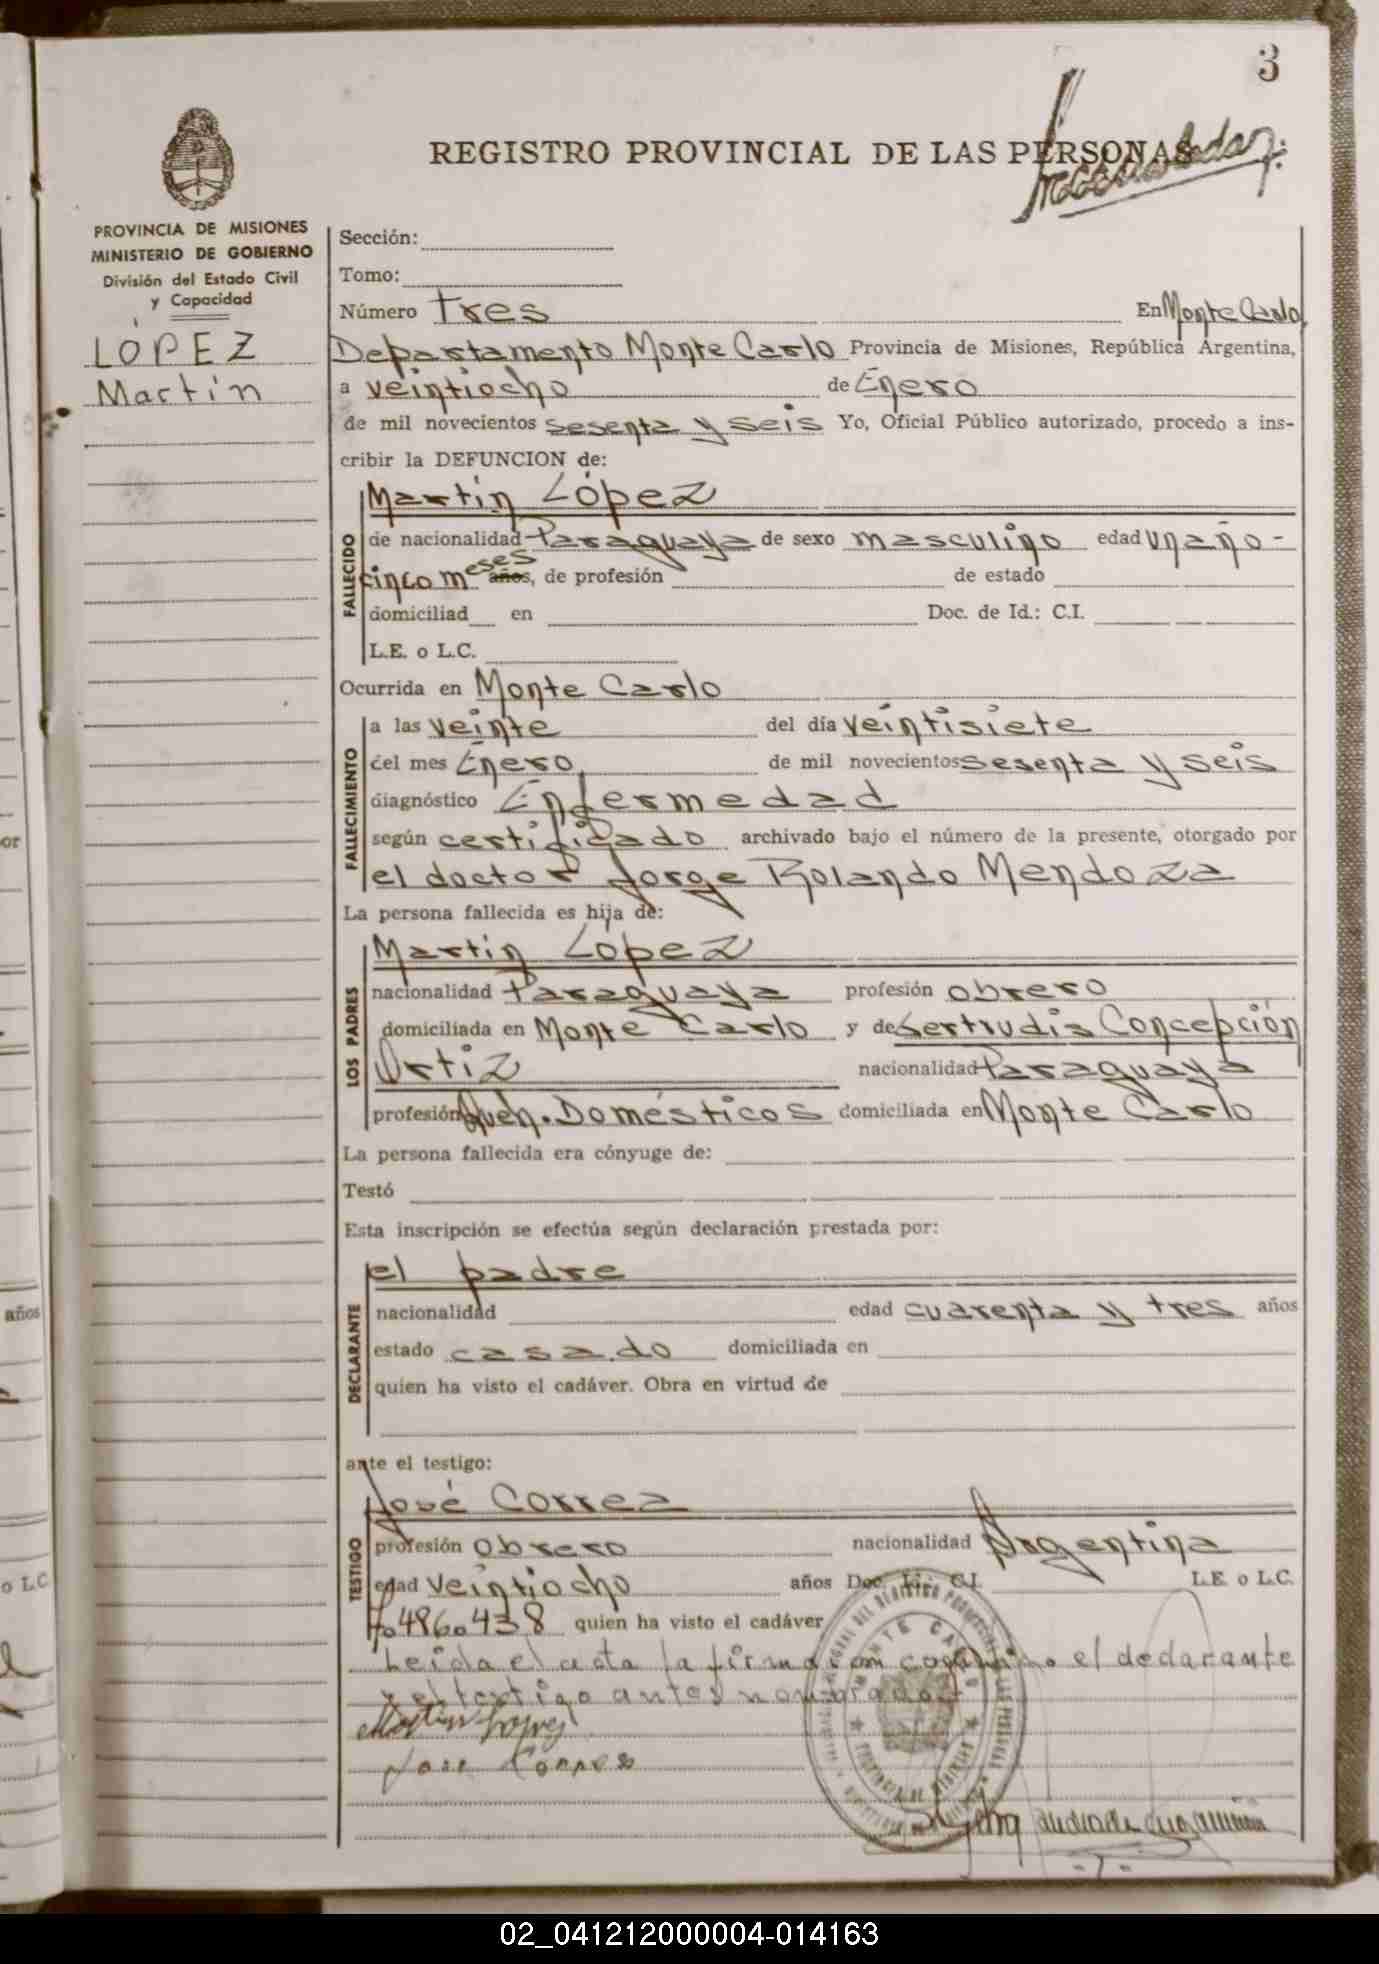 3
REGISTRO PROVINCIAL DE LAS PERSONAS
PROVINCIA DE MISIONES
MINISTERIO DE GOBIERNO
División del Estado Civil
y Capacidad
LÓPEZ
Martín
Sección:
Tomo:
Número Tres En Monte Carlo
Departamento Monte Carlo Provincia de Misiones, República Argentina,
a veintiocho de Enero
de mil novecientos sesenta y seis Yo, Oficial Público autorizado, procedo a ins-
cribir la DEFUNCION de:
Martín López
FALLECIDO
de nacionalidad Paraguaya de sexo masculino edad un año -
cinco meses años, de profesión de estado
domiciliad en Doc. de Id.: C.I.
L.E. o L.C.
Ocurrida en Monte Carlo
FALLECIMIENTO
a las veinte del día veintisiete
del mes Enero de mil novecientos sesenta y seis
diagnóstico Enfermedad
según certificado archivado bajo el número de la presente, otorgado por
el doctor Jorge Rolando Mendoza
La persona fallecida es hija de:
Martín López
LOS PADRES
nacionalidad Paraguaya profesión obrero
domiciliada en Monte Carlo y de Gertrudis Concepción
Ortiz nacionalidad Paraguaya
profesión Queh. Domésticos domiciliada en Monte Carlo
La persona fallecida era cónyuge de:
Testó
Esta inscripción se efectúa según declaración prestada por:
el padre
DECLARANTE
nacionalidad edad cuarenta y tres años
estado casado domiciliada en
quien ha visto el cadáver. Obra en virtud de
ante el testigo:
José Correa
TESTIGO
profesión obrero nacionalidad Argentina
edad veintiocho años Doc. Id.: C.I. L.E. o L.C.
7.486.438 quien ha visto el cadáver
Leida el acta la firmaron conmigo el declarante
y el testigo antes nombrados
Martin Lopez
Jose Correa
02_041212000004-014163